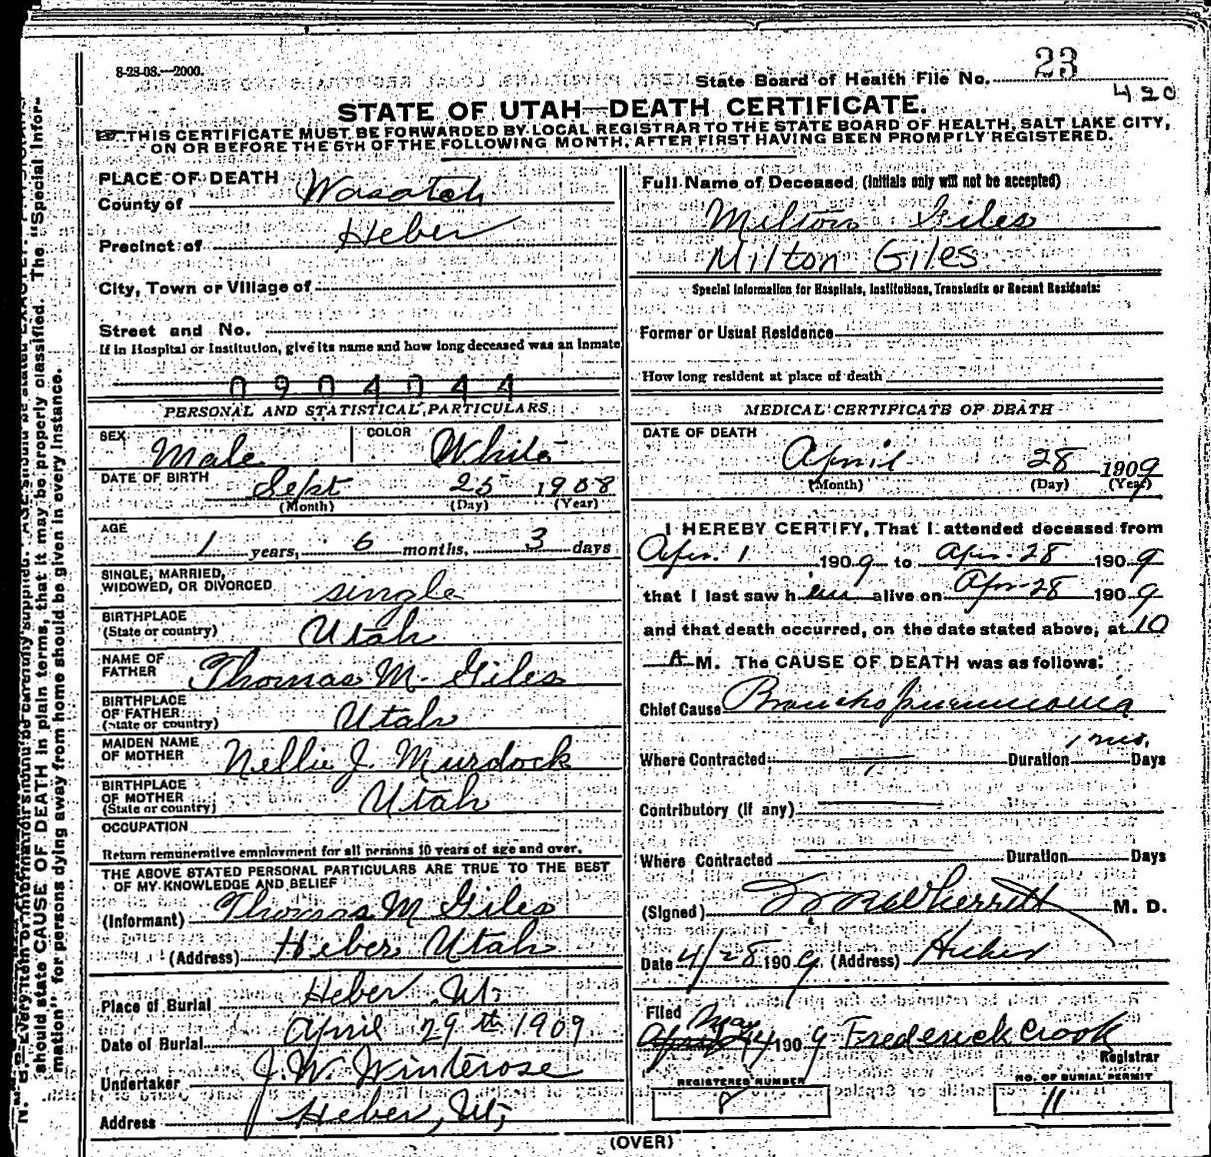 8-28-08.—2000.
State Board of Health File No. 23
420
STATE OF UTAH—DEATH CERTIFICATE.
THIS CERTIFICATE MUST BE FORWARDED BY LOCAL REGISTRAR TO THE STATE BOARD OF HEALTH, SALT LAKE CITY,
ON OR BEFORE THE 5TH OF THE FOLLOWING MONTH, AFTER FIRST HAVING BEEN PROMPTLY REGISTERED.
PLACE OF DEATH
County of Wasatch
Precinct of Heber
City, Town or Village of
Street and No.
If in Hospital or Institution, give its name and how long deceased was an Inmate
0904044
PERSONAL AND STATISTICAL PARTICULARS
SEX Male COLOR White
DATE OF BIRTH Sept 25 1908
(Month) (Day) (Year)
AGE
1 years, 6 months, 3 days
SINGLE, MARRIED,
WIDOWED, OR DIVORCED single
BIRTHPLACE
(State or country) Utah
NAME OF
FATHER Thomas M. Giles
BIRTHPLACE
OF FATHER
(State or country) Utah
MAIDEN NAME
OF MOTHER Nellie J. Murdock
BIRTHPLACE
OF MOTHER
(State or country) Utah
OCCUPATION
Return remunerative employment for all persons 10 years of age and over.
THE ABOVE STATED PERSONAL PARTICULARS ARE TRUE TO THE BEST
OF MY KNOWLEDGE AND BELIEF
(Informant) Thomas M Giles
(Address) Heber Utah
Place of Burial Heber Ut,
Date of Burial April 29th 1909
Undertaker J. W. Winterose
Address Heber, Ut,
Full Name of Deceased (Initials only will not be accepted)
Milton Giles
Milton Giles
Special Information for Hospitals, Institutions, Transients or Recent Residents:
Former or Usual Residence
How long resident at place of death
MEDICAL CERTIFICATE OF DEATH
DATE OF DEATH
April 28 1909
(Month) (Day) (Year)
I HEREBY CERTIFY, That I attended deceased from
Apr. 1 1909 to Apr. 28 1909
that I last saw him alive on Apr 28 1909
and that death occurred, on the date stated above, at 10
A M. The CAUSE OF DEATH was as follows:
Chief Cause Broncho pneumonia
1 mo.
Where Contracted Duration Days
Contributory (if any)
Where Contracted Duration Days
(Signed) Wherritt M. D.
Date 4/28 1909 (Address) Heber
Filed May
4 1909 Frederick Crook
Registrar
REGISTERED NUMBER
8
NO. OF BURIAL PERMIT
11
(OVER)
should state CAUSE OF DEATH in plain terms, that it may be properly classified. The "Special Infor-
mation" for persons dying away from home should be given in every instance.